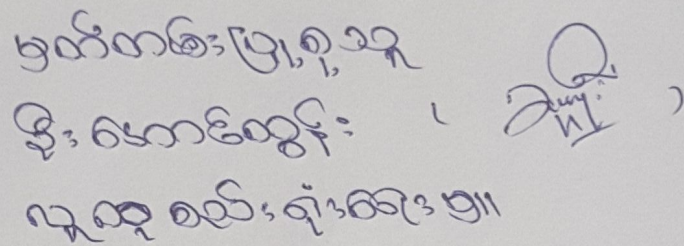 မှတ်တမ်းပြုစုသူ
ဦးအောင်ထွန်း (
လူထု စည်းရုံးရေးမှူး